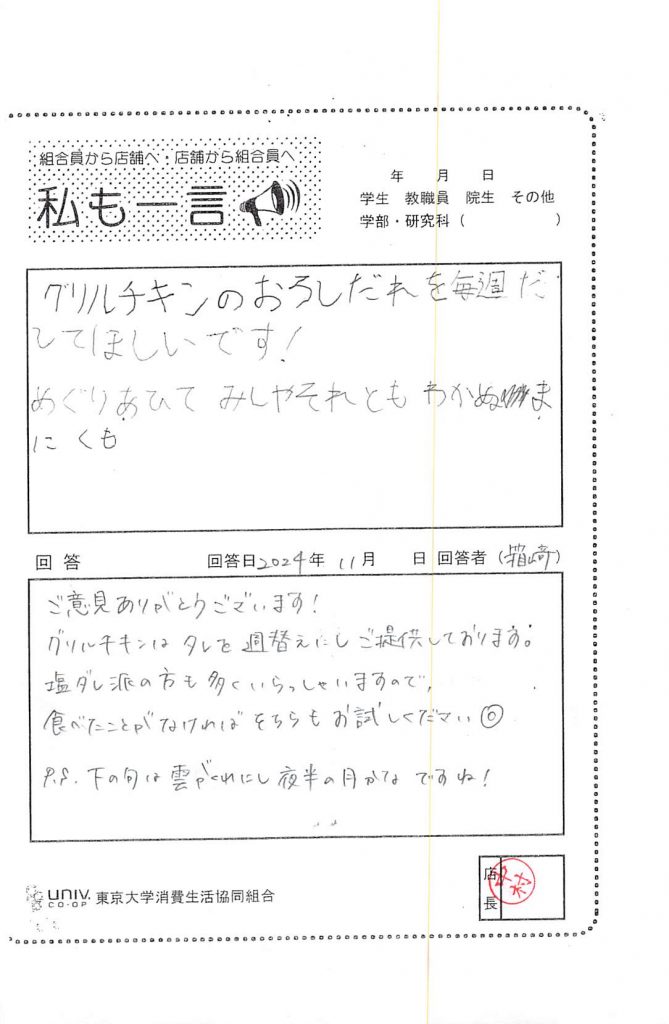 組合員から店舗へ・店舗から組合員へ
私も一言
年 月 日
学生 教職員 院生 その他
学部・研究科( )
グリルチキンのおろしだれを毎週だ
してほしいです!
めぐりあひて みしやそれとも わかぬま
にくも
回答 回答日2024年 11月 日 回答者(箱崎)
ご意見ありがとうございます!
グリルチキンはタレを週替えにしご提供しております。
塩ダレ派の方も多くいらっしゃいますので、
食べたことがなければそちらもお試しください◎
P.S. 下の句は雲がくれにし夜半の月かな ですね!
UNIV. CO-OP 東京大学消費生活協同組合
店長